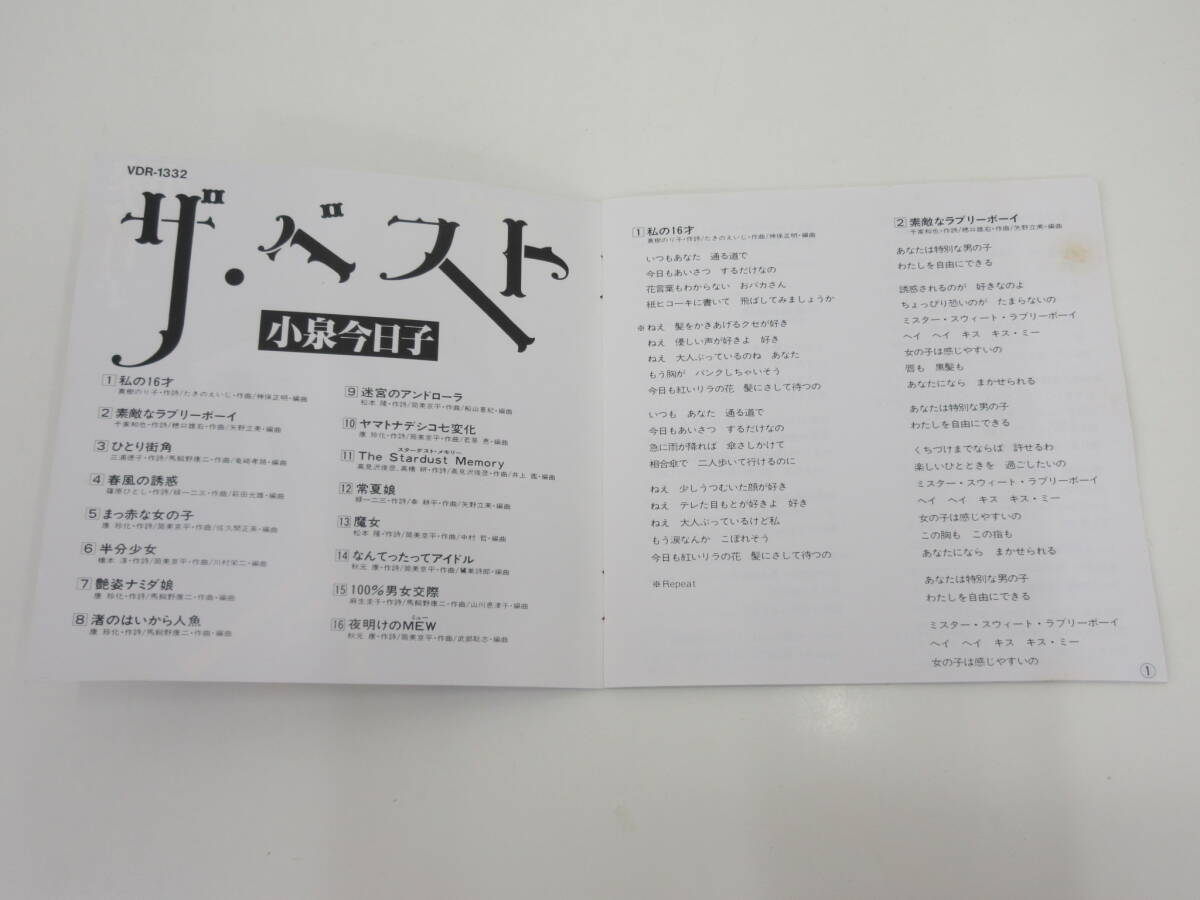 VDR-1332
ザ・ベスト
小泉今日子
1 私の16才
真樹のり子・作詩/たきのえいじ・作曲/神保正明・編曲
2 素敵なラブリーボーイ
千家和也・作詩/穂口雄右・作曲/矢野立美・編曲
3 ひとり街角
三浦徳子・作詩/馬飼野康二・作曲/竜崎孝路・編曲
4 春風の誘惑
篠原ひとし・作詩/緑一二三・作曲/萩田光雄・編曲
5 まっ赤な女の子
康 珍化・作詩/筒美京平・作曲/佐久間正英・編曲
6 半分少女
橋本 淳・作詩/筒美京平・作曲/川村栄二・編曲
7 艶姿ナミダ娘
康 珍化・作詩/馬飼野康二・作曲・編曲
8 渚のはいから人魚
康 珍化・作詩/馬飼野康二・作曲・編曲
9 迷宮のアンドローラ
松本 隆・作詩/筒美京平・作曲/船山基紀・編曲
10 ヤマトナデシコ七変化
康 珍化・作詩/筒美京平・作曲/若草 恵・編曲
スターダスト・メモリー
11 The Stardust Memory
高見沢俊彦、高橋 研・作詩/高見沢俊彦・作曲/井上 鑑・編曲
12 常夏娘
緑一二三・作詩/幸 耕平・作曲/矢野立美・編曲
13 魔女
松本 隆・作詩/筒美京平・作曲/中村 哲・編曲
14 なんてったってアイドル
秋元 康・作詩/筒美京平・作曲/鷺巣詩郎・編曲
15 100%男女交際
麻生圭子・作詩/馬飼野康二・作曲/山川恵津子・編曲
ミュー
16 夜明けのMEW
秋元 康・作詩/筒美京平・作曲/武部聡志・編曲
1 私の16才
真樹のり子・作詩/たきのえいじ・作曲/神保正明・編曲
いつもあなた 通る道で
今日もあいさつ するだけなの
花言葉もわからない おバカさん
紙ヒコーキに書いて 飛ばしてみましょうか
※ねえ 髪をかきあげるクセが好き
ねえ 優しい声が好きよ 好き
ねえ 大人ぶっているのね あなた
もう胸が パンクしちゃいそう
今日も紅いリラの花 髪にさして待つの
いつも あなた 通る道で
今日もあいさつ するだけなの
急に雨が降れば 傘さしかけて
相合傘で 二人歩いて行けるのに
ねえ 少しうつむいた顔が好き
ねえ テレた目もとが好きよ 好き
ねえ 大人ぶっているけど私
もう涙なんか こぼれそう
今日も紅いリラの花 髪にさして待つの
※Repeat
2 素敵なラブリーボーイ
千家和也・作詩/穂口雄右・作曲/矢野立美・編曲
あなたは特別な男の子
わたしを自由にできる
誘惑されるのが 好きなのよ
ちょっぴり恐いのが たまらないの
ミスター・スウィート・ラブリーボーイ
ヘイ ヘイ キス キス・ミー
女の子は感じやすいの
唇も 黒髪も
あなたになら まかせられる
あなたは特別な男の子
わたしを自由にできる
くちづけまでならば 許せるわ
楽しいひとときを 過ごしたいの
ミスター・スウィート・ラブリーボーイ
ヘイ ヘイ キス キス・ミー
女の子は感じやすいの
この胸も この指も
あなたになら まかせられる
あなたは特別な男の子
わたしを自由にできる
ミスター・スウィート・ラブリーボーイ
ヘイ ヘイ キス キス・ミー
女の子は感じやすいの
①